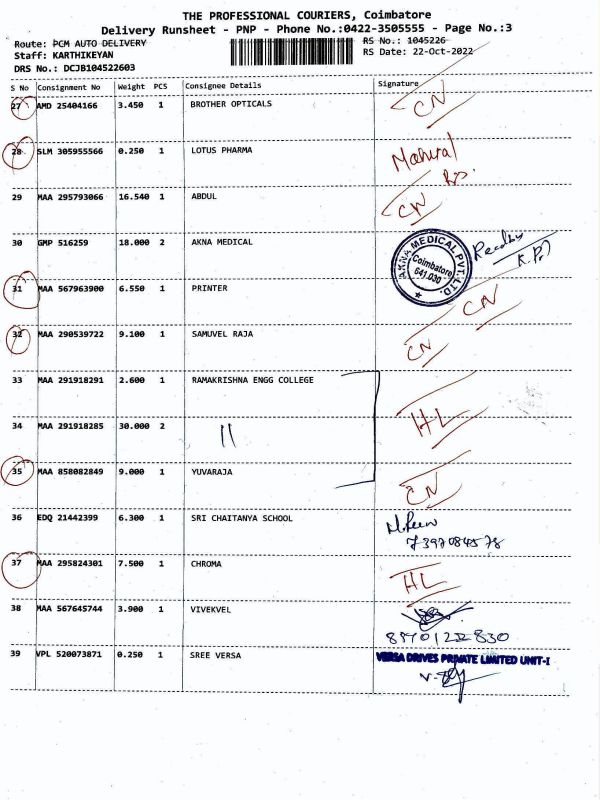 THE PROFESSIONAL COURIERS, Coimbatore
Delivery Runsheet - PNP - Phone No.:0422-3505555 - Page No.:3
Route: PCM AUTO DELIVERY
RS No.: 1045226
Staff: KARTHIKEYAN
RS Date: 22-Oct-2022
DRS No.: DCJB104522603
S No Consignment No Weight PCS Consignee Details Signature
27 AMD 25404166 3.450 1 BROTHER OPTICALS CN
28 SLM 305955566 0.250 1 LOTUS PHARMA
29 MAA 295793066 16.540 1 ABDUL CN
30 GMP 516259 18.000 2 AKNA MEDICAL
AKNA MEDICAL PVT. LTD.
Coimbatore
641.030
31 MAA 567963900 6.550 1 PRINTER CN
32 MAA 290539722 9.100 1 SAMUVEL RAJA CN
33 MAA 291918291 2.600 1 RAMAKRISHNA ENGG COLLEGE
34 MAA 291918285 30.000 2 11 HL
35 MAA 858082849 9.000 1 YUVARAJA CN
36 EDQ 21442399 6.300 1 SRI CHAITANYA SCHOOL
37 MAA 295824301 7.500 1 CHROMA HL
38 MAA 567645744 3.900 1 VIVEKVEL
39 VPL 520073871 0.250 1 SREE VERSA
VERSA DRIVES PRIVATE LIMITED UNIT-I